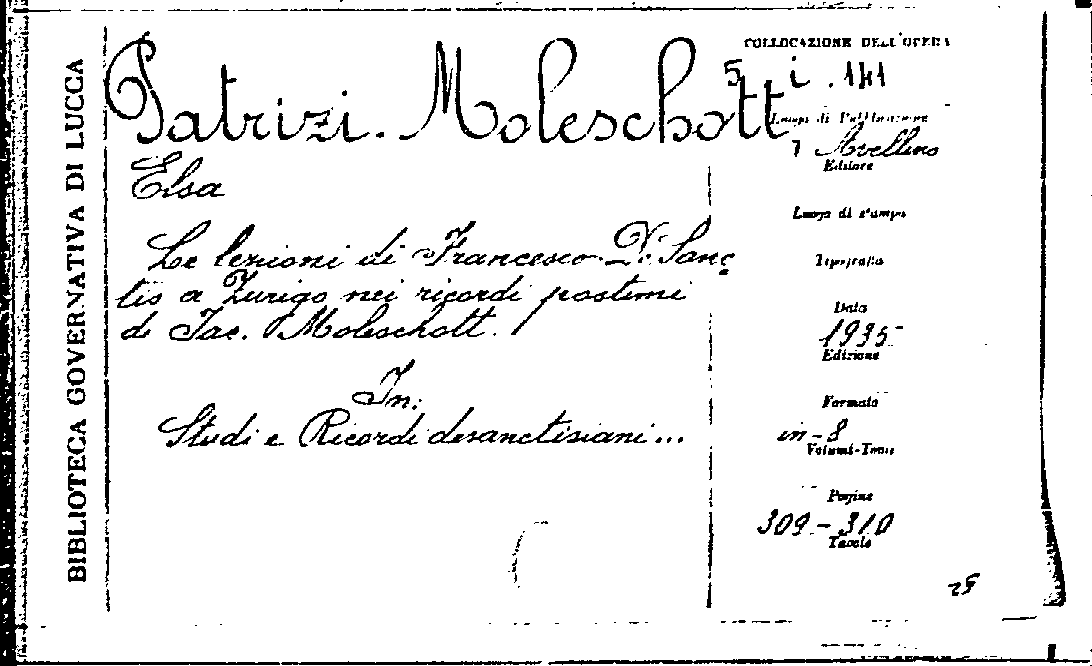 BIBLIOTECA GOVERNATIVA DI LUCCA
Patrizi. Moleschott
Elsa
Le lezioni di Francesco De Sanc
tis a Zurigo nei ricordi postumi
di Jac. Moleschott.
In:
Studi e Ricordi desanctisiani...
COLLOCAZIONE DELL'OPERA
5 i. 141
Luogo di Pubblicazione
Avellino
Editore
Luogo di stampa
Tipografia
Data
1935
Edizione
Formato
in-8
Volumi-Tomi
Pagine
309-310
Tavole